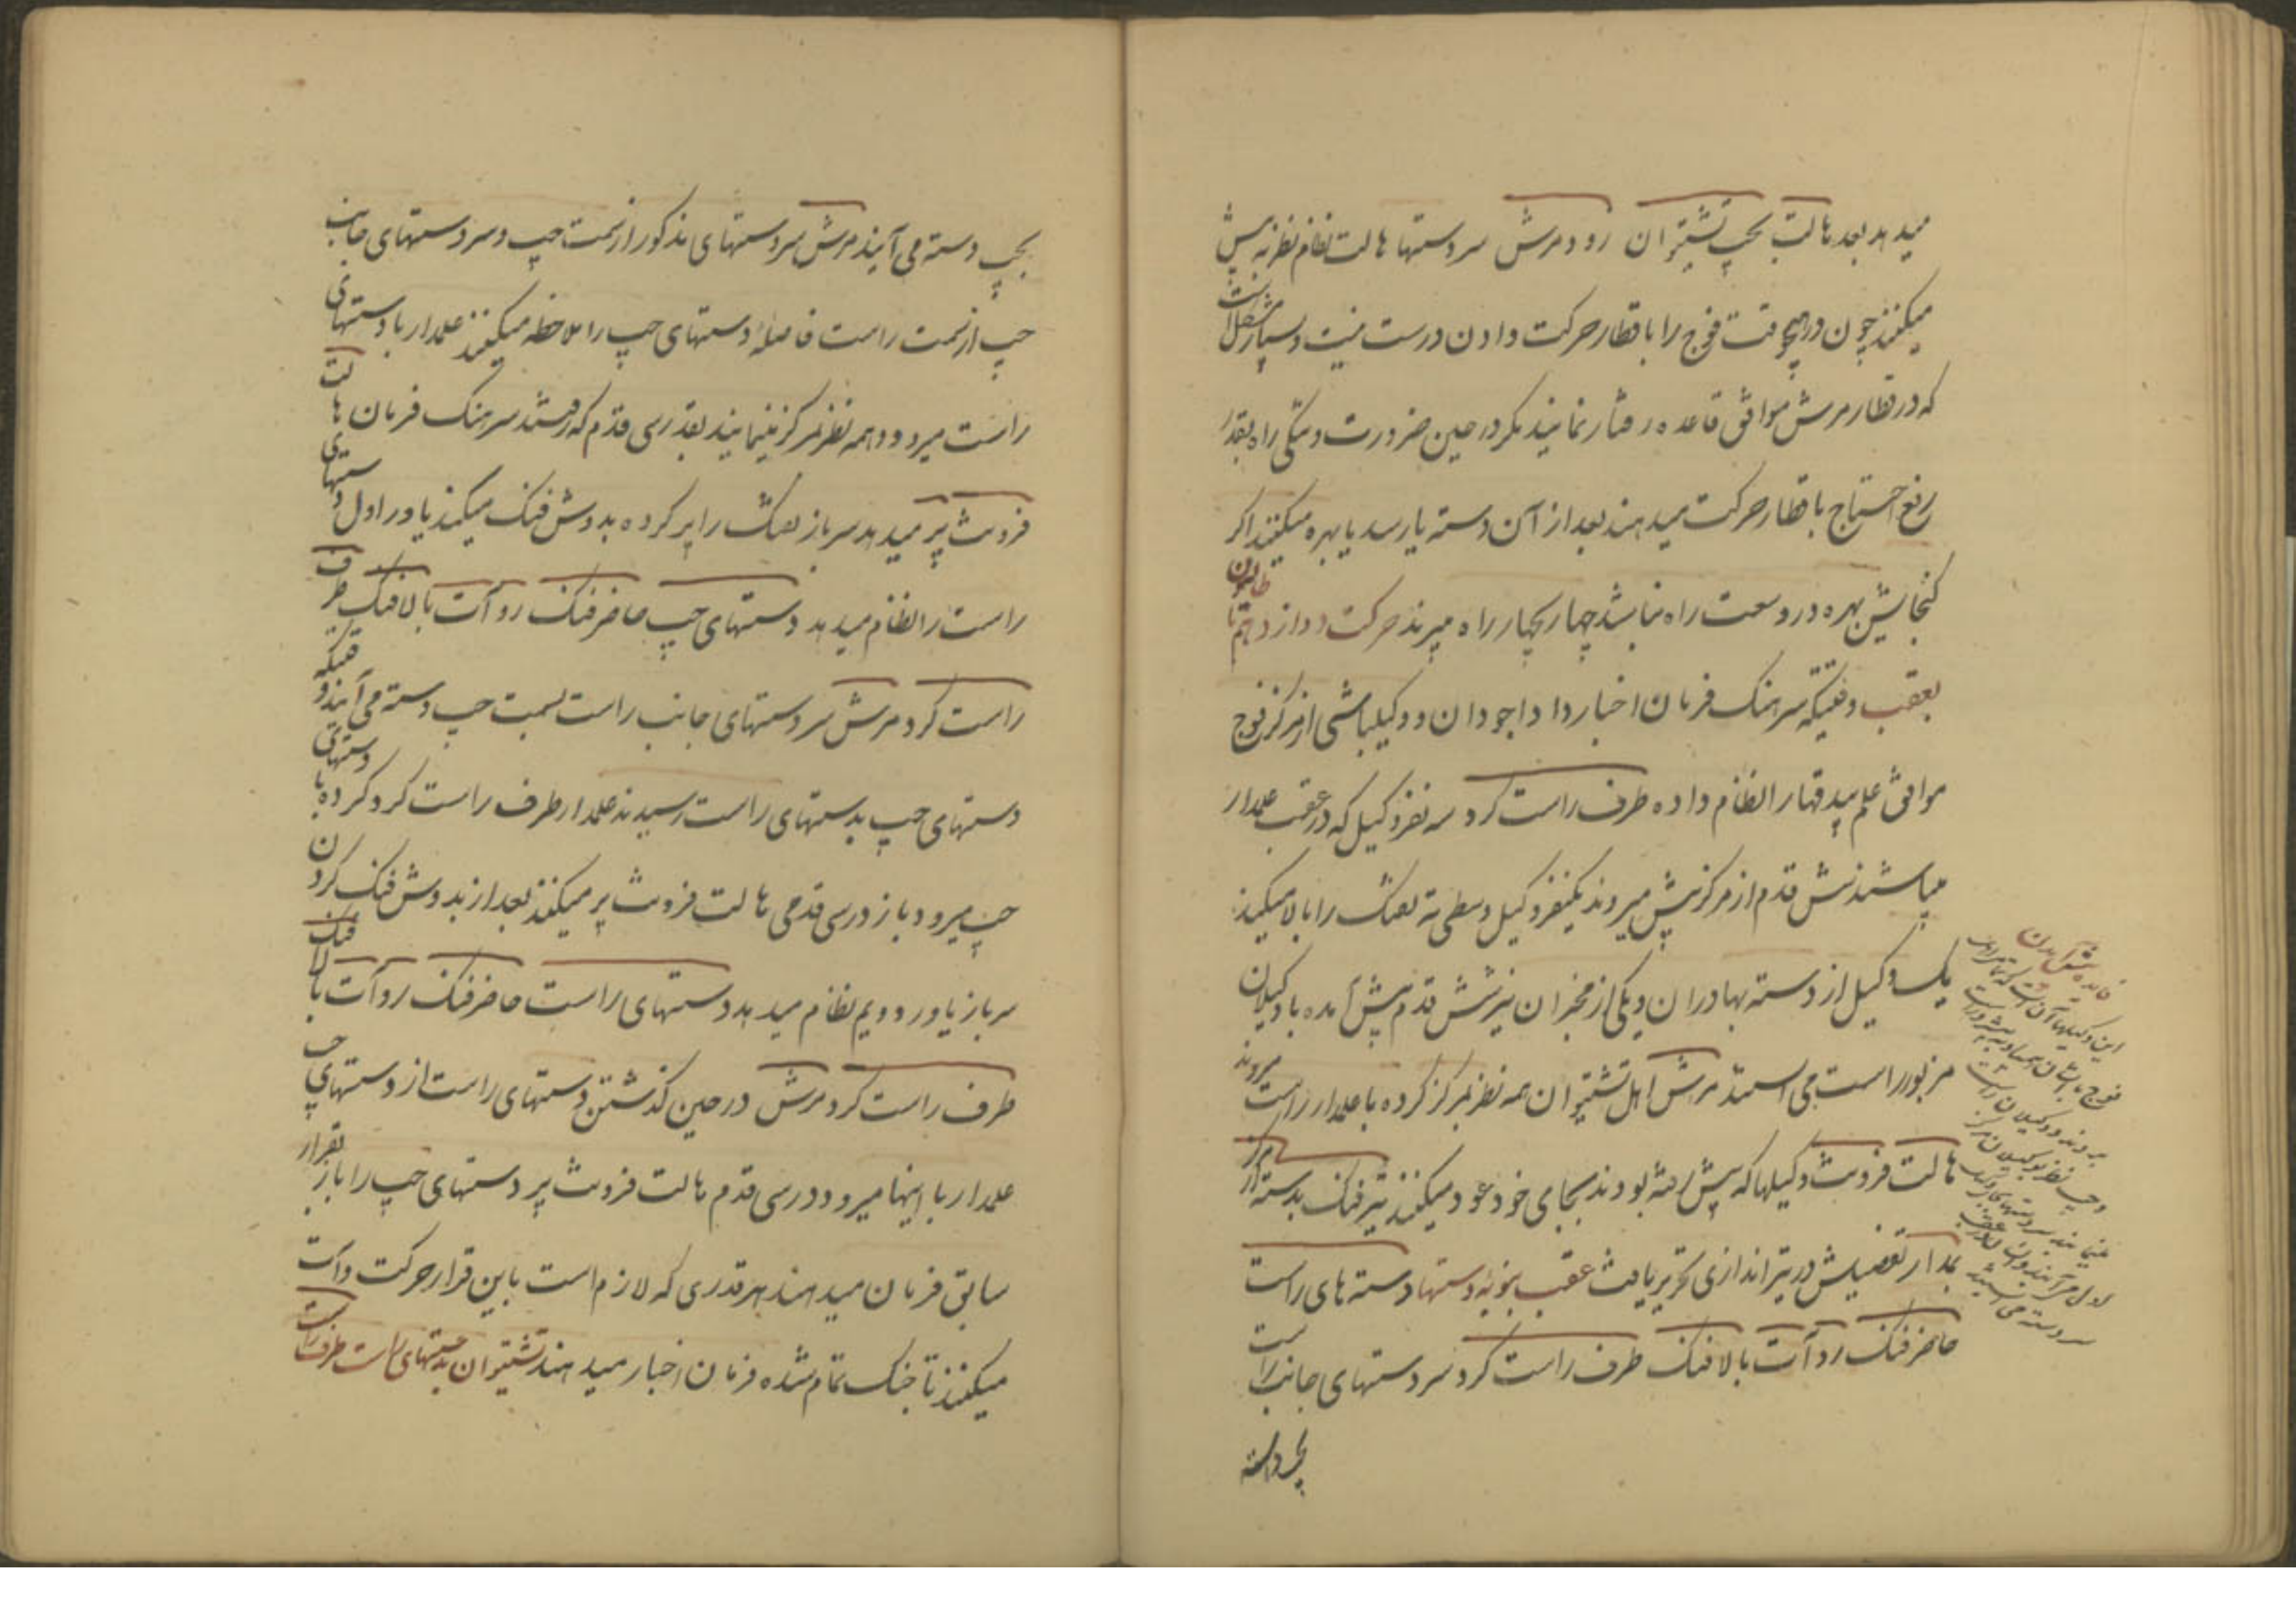 میدهد بعد هالت بچپ تشتیران رو و مرش سر دستها هالت نظام نظر به پیش
میکنند چون در هیچ وقت فوج را با قطار حرکت دادن درست نیست و بسیار مشکل است
که در قطار مرش موافق قاعده رفتار نمایند مکر در حین ضرورت و تنکی راه بقدر
رفع احتیاج با قطار حرکت میدهند بعد از آن دسته یا رسد یا بهره میکنند اکر
کنجایش بهره در وسعت راه نباشد چهار بچهار راه میبرند حرکت دوازدهم
بعقب وقتیکه سرهنک فرمان اخبار داد اجودان و وکیلباشی از مرکز فوج
موافق علم بیدقها را نظام داده طرف راست کرد سه نفر وکیل که در عقب علمدار
میباشند شش قدم از مرکز پیش میروند یکنفر وکیل وسطی ته تفنک را بالا میکیرد
یک وکیل از دسته بهادران و یکی از مخبران نیز شش قدم پیش آمده با وکیلان
مزبور راست می ایستند مرش اهل تشتیران همه نظر بمرکز کرده با علمدار راست میروند
هالت فروت وکیلها که پیش رفته بودند بجای خود عود میکنند تیر فنک بدسته از مرکز
بمدار تفصیلش در تیراندازی تحریر یافت عقب بنوبه دستها دسته های راست
حاضر فنک رو آت بالا فنک طرف راست کرد سر دستهای جانب راست
بچپ دسته
فایده پیش آمدن
این وکیلها آن است که
بروند و وکیلان راست
و چپ نظر بوکیلان مرکز
سر دسته می ایستند
بچپ دسته می آیند مرش سر دستهای مذکور از سمت چپ و سر دستهای جانب
چپ از سمت راست فاصله دستهای چپ را ملاحظه میکنند علمدار با دستهای
راست میرود و همه نظر بمرکز مینمایند بقدر سی قدم که رفتند سرهنک فرمان هالت
فروت پر میدهد سرباز تفنک را پر کرده بدوش فنک میکند یاور اول دستهای
راست را نظام میدهد دستهای چپ حاضر فنک رو آت بالا فنک طرف
راست کرد مرش سر دستهای جانب راست بسمت چپ دسته می آیند وقتیکه
دستهای چپ بدستهای راست رسیدند علمدار طرف راست کرد کرده با دستهای
چپ میرود باز در سی قدمی هالت فروت پر میکنند بعد از بدوش فنک کردن
سرباز یاور دویم نظام میدهد دستهای راست حاضر فنک رو آت بالا فنک
طرف راست کرد مرش در حین کذشتن دستهای راست از دستهای چپ
علمدار با اینها میرود در سی قدم هالت فروت پر دستهای چپ را باز بقرار
سابق فرمان میدهند هر قدری که لازم است باین قرار حرکت و آت
میکنند تا جنک تمام شده فرمان اخبار میدهند تشتیران بدستهای راست طرف راست